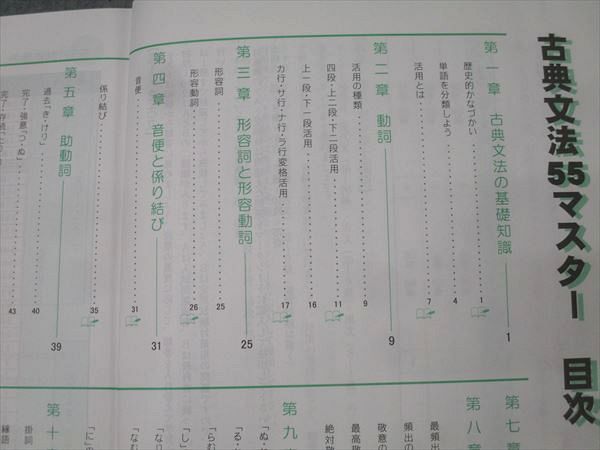 古典文法55マスター 目次
第一章 古典文法の基礎知識 1
歴史的かなづかい 1
単語を分類しよう 4
活用とは 7
第二章 動詞 9
活用の種類 9
四段・上二段・下二段活用 11
上一段・下一段活用 16
カ行・サ行・ナ行・ラ行変格活用 17
第三章 形容詞と形容動詞 25
形容詞 25
形容動詞 26
第四章 音便と係り結び 31
音便 31
係り結び 35
第五章 助動詞 39
過去「き・けり」 40
完了・強意「つ・ぬ」 43
第七章
第八章
最頻出
頻出の
敬意の
最高敬
絶対敬
第九
「ぬ」
「る」
「らむ
「し」
「なり
「なむ
「に」の
第十
掛詞
縁語